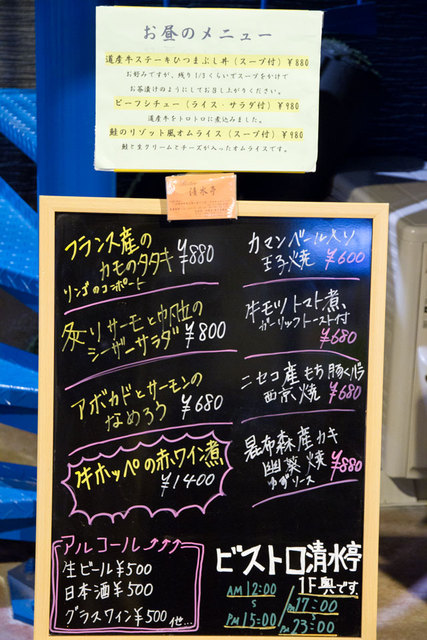 お昼のメニュー
道産牛ステーキひつまぶし丼（スープ付）￥880
お好みですが、残り1/3くらいでスープをかけて
お茶漬けのようにしてお召し上がりください。
ビーフシチュー（ライス・サラダ付）￥980
道産牛をトロトロに煮込みました。
鮭のリゾット風オムライス（スープ付）￥980
鮭と生クリームとチーズが入ったオムライスです。
清水亭
フランス産の
カモのタタキ ￥880
リンゴのコンポート
炙りサーモンと帆立の
シーザーサラダ ￥800
アボカドとサーモンの
なめろう ￥680
牛ホッペの赤ワイン煮
￥1400
カマンベール入り
玉子焼 ￥600
牛モツトマト煮
ガーリックトースト付
￥680
ニセコ産もち豚バラ
西京焼 ￥680
昆布森産カキ
幽菜焼 ￥880
ゆずソース
アルコール
生ビール￥500
日本酒￥500
グラスワイン￥500他…
ビストロ清水亭
1F奥です。
AM12:00
PM15:00
PM17:00
PM23:00